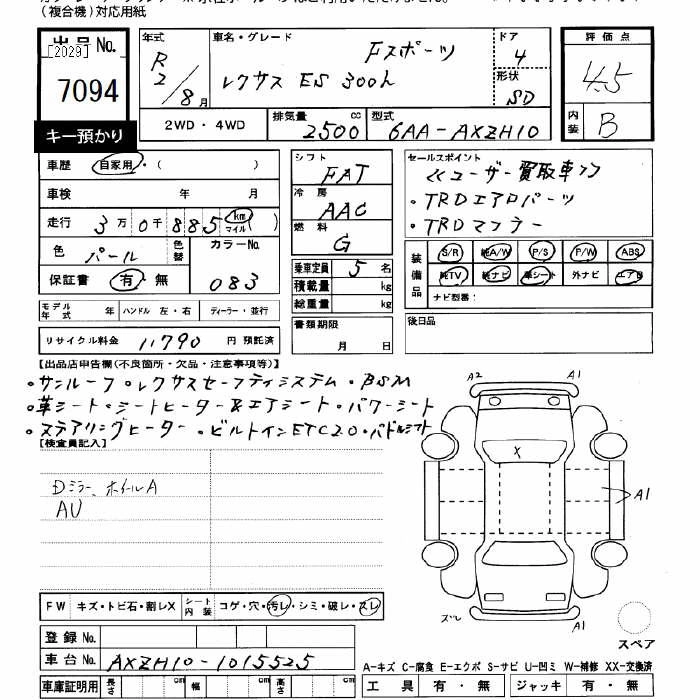 (複合機)対応用紙
出品 No.
[2029]
7094
キー預かり
年式
R2/8月
車名・グレード
Fスポーツ
レクサス ES 300h
ドア
4
形状
SD
評価点
4.5
内装
B
2WD・4WD
排気量
2500 cc
型式
6AA-AXZH10
車歴
自家用・( )
車検 年 月
走行 3万0千885 km マイル( )
色
パール
色替
カラーNo.
083
保証書
有・無
モデル年式 年
ハンドル 左・右
ディーラー・並行
リサイクル料金 11790 円 預託済
シフト
FAT
冷房
AAC
燃料
G
乗車定員 5 名
積載量 kg
総重量 kg
書類期限
月 日
セールスポイント
《ユーザー買取車》
・TRDエアロパーツ
・TRDマフラー
装備品
S/R 純A/W P/S P/W ABS
純TV 純ナビ 革シート 外ナビ エアB
ナビ型番:
後日品
【出品店申告欄(不良箇所・欠品・注意事項等)】
・サンルーフ・レクサスセーフティシステム・BSM
・革シート・シートヒーター&エアシート・パワーシート
・ステアリングヒーター・ビルトインETC2.0・パドルシフト
【検査員記入】
Dミラー、ホイールA
AU
A2
A1
X
A1
ズレ
A1
スペア
FW キズ・トビ石・割レX
シート内装 コゲ・穴・汚レ・シミ・破レ・スレ
登録 No.
車台 No. AXZH10-1015525
車庫証明用 長さ cm 幅 cm 高さ cm
A-キズ C-腐食 E-エクボ S-サビ U-凹ミ W-補修 XX-交換済
工具 有・無 ジャッキ 有・無